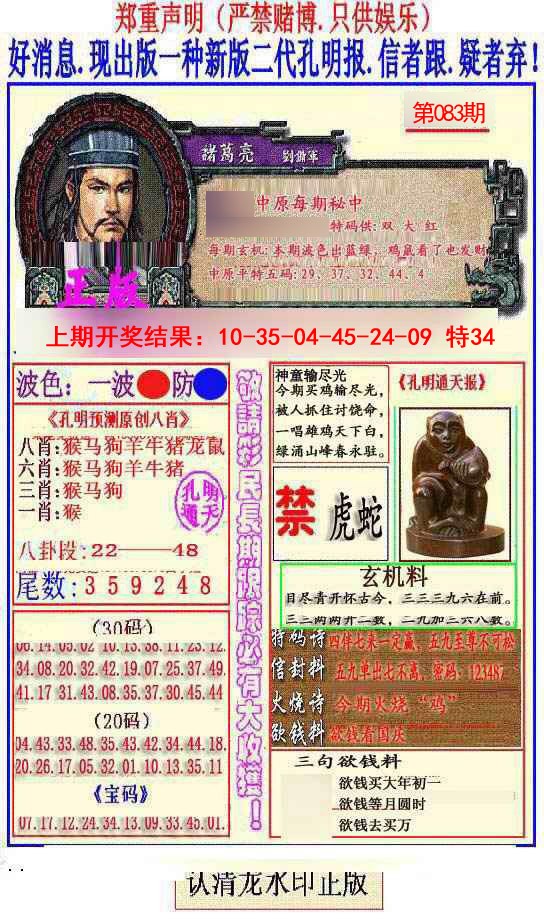 郑重声明（严禁赌博.只供娱乐）
好消息.现出版一种新版二代孔明报.信者跟.疑者弃！
第083期
諸葛亮
中原每期秘中
特码供:双大红
每期玄机:本期波色出蓝绿，鸡鼠看了也发财
中原平特五码:29、37、32、44、4
正版
上期开奖结果：10-35-04-45-24-09 特34
波色：一波 防
《孔明预测原创八肖》
八肖:猴马狗羊牛猪龙鼠
六肖:猴马狗羊牛猪
三肖:猴马狗
一肖:猴
孔明
通天
八卦段:22——48
尾数:359248
敬請彩民長期跟踪必有大收獲！
神童输尽光
今期买鸡输尽光，
被人抓住讨饶命，
一唱雄鸡天下白，
绿涌山峰春永驻。
《孔明通天报》
禁
虎蛇
玄机料
目尽青开怀古今，三三三九六在前。
三三两两开二数，二九加三六八数。
（30码）
06.14.05.02 10.13.38.11.23.12.
34.08.20.32.42.19.07.25.37.49.
41.17 31.43.08.35.37.30.45.44
（20码）
04.43.33.48.35.43.42.34.44.18.
20.26.17.05.32.01.10.13.35.11
《宝码》
07.17.12.24.34.13.09.33.45.01.
特码诗 四伴七来一定赢、五九至尊不可松
信封料 五九单出七不离，密码：123487
火烧诗 今期火烧“鸡”
欲钱料 欲钱看国庆
三句欲钱料
欲钱买大年初一
欲钱等月圆时
欲钱去买万
认清龙水印正版